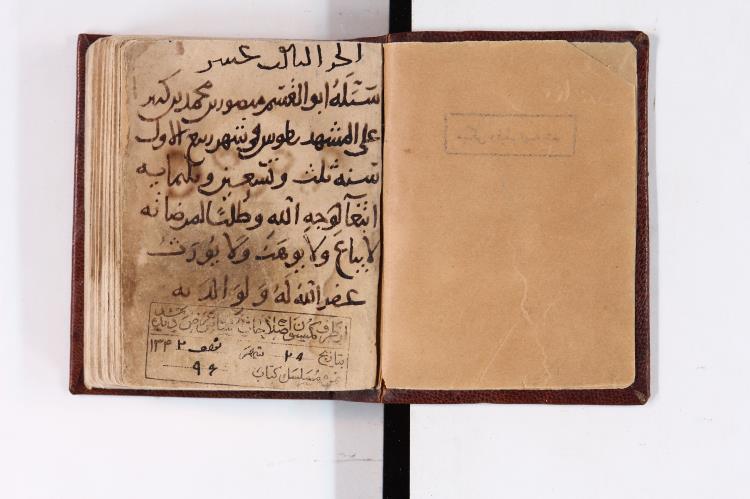 الجزء الثالث عشر
سبّله ابو القسم منصور بن محمد بن كثير
على المشهد بطوس في شهر ربيع الاول
سنة ثلث وتسعين وثلثمايه
ابتغآ لوجه الله وطلبا لمرضاته
لا يباع ولا يوهب ولا يورث
غفر الله له ولوالديه
از طرف كمسيون اصلاحات
بتاريخ ٢٥ شهر ١٣٤٢
نمره مسلسل كتاب ٩٤